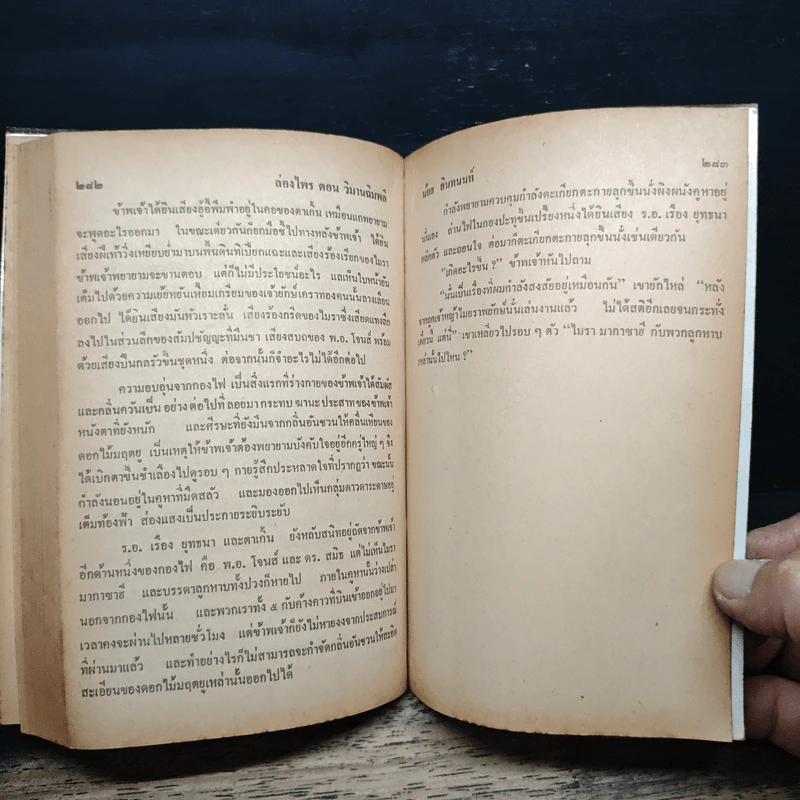 ๒๘๒
ล่องไพร ตอน วิมานฉิมพลี
ข้าพเจ้าได้ยินเสียงอู้อี้พึมพำอยู่ในคอของตาเกิ้น เหมือนแกพยายาม
จะพูดอะไรออกมา ในขณะเดียวกันก็ยกมือชี้ไปทางหลังข้าพเจ้า ได้ยิน
เสียงฝีเท้าวิ่งเหยียบย่ำมาบนพื้นดินที่เปียกแฉะและเสียงร้องเรียกของไมรา
ข้าพเจ้าพยายามจะขานตอบ แต่ก็ไม่มีประโยชน์อะไร แลเห็นใบหน้าอัน
เต็มไปด้วยความเย้ยหยันเหี้ยมเกรียมของเจ้ายักษ์เคราทองคนนั้นลางเลือน
ออกไป ได้ยินเสียงมันหัวเราะลั่น เสียงร้องกรีดของไมราซึ่งเสียดแทงลึก
ลงไปในส่วนลึกของสัมปชัญญะที่มึนชา เสียงสบถของ พ.อ. โจนส์ พร้อม
ด้วยเสียงปืนกลรัวขึ้นชุดหนึ่ง ต่อจากนั้นก็จำอะไรไม่ได้อีกต่อไป
ความอบอุ่นจากกองไฟ เป็นสิ่งแรกที่ร่างกายของข้าพเจ้าได้สัมผัส
และกลิ่นควันเป็น อย่าง ต่อไปที่ ลอยมา กระทบ ฆานะ ประสาท ของข้าพเจ้า
หนังตาที่ยังหนัก และศีรษะที่ยังมึนจากกลิ่นอันชวนให้คลื่นเหียนของ
ดอกไม้มฤตยู เป็นเหตุให้ข้าพเจ้าต้องพยายามบังคับใจอยู่อีกครู่ใหญ่ ๆ จึง
ได้เบิกตาขึ้นชำเลืองไปดูรอบ ๆ กายรู้สึกประหลาดใจที่ปรากฏว่า ขณะนั้น
กำลังนอนอยู่ในคูหาที่มืดสลัว และมองออกไปเห็นกลุ่มดาวดาระดาษอยู่
เต็มท้องฟ้า ส่องแสงเป็นประกายระยิบระยับ
ร.อ. เรือง ยุทธนา และตาเกิ้น ยังหลับสนิทอยู่ถัดจากข้าพเจ้า
อีกด้านหนึ่งของกองไฟ คือ พ.อ. โจนส์ และ ดร. สมิธ แต่ไม่เห็นไมรา
มากาซาฮี และบรรดาลูกหาบทั้งปวงก็หายไป ภายในคูหานั้นว่างเปล่า
นอกจากกองไฟนั้น และพวกเราทั้ง ๕ กับค้างคาวที่บินเข้าออกอยู่ไปมา
เวลาคงจะผ่านไปหลายชั่วโมง แต่ข้าพเจ้าก็ยังไม่หายงงจากประสบการณ์
ที่ผ่านมาแล้ว และทำอย่างไรก็ไม่สามารถจะกำจัดกลิ่นอันชวนให้สะอิด
สะเอียนของดอกไม้มฤตยูเหล่านั้นออกไปได้
น้อย อินทนนท์
๒๘๓
กำลังพยายามควบคุมกำลังตะเกียกตะกายลุกขึ้นนั่งพิงผนังคูหาอยู่
นั่นเอง ถ่านไฟในกองปะทุขึ้นเปรี้ยงหนึ่งได้ยินเสียง ร.อ. เรือง ยุทธนา
พลิกตัว และถอนใจ ต่อมาก็ตะเกียกตะกายลุกขึ้นนั่งเช่นเดียวกัน
“เกิดอะไรขึ้น ?” ข้าพเจ้าหันไปถาม
“นั่นเป็นเรื่องที่ผมกำลังสงสัยอยู่เหมือนกัน” เขายักไหล่ “หลัง
จากถูกเจ้าหญ้าไมยราพยักษ์นั่นเล่นงานแล้ว ไม่ได้สติอีกเลยจนกระทั่ง
เดี๋ยวนี้ แต่นี่” เขาเหลียวไปรอบ ๆ ตัว “ไมรา มากาซาฮี กับพวกลูกหาบ
เหล่านั้นไปไหน ?”